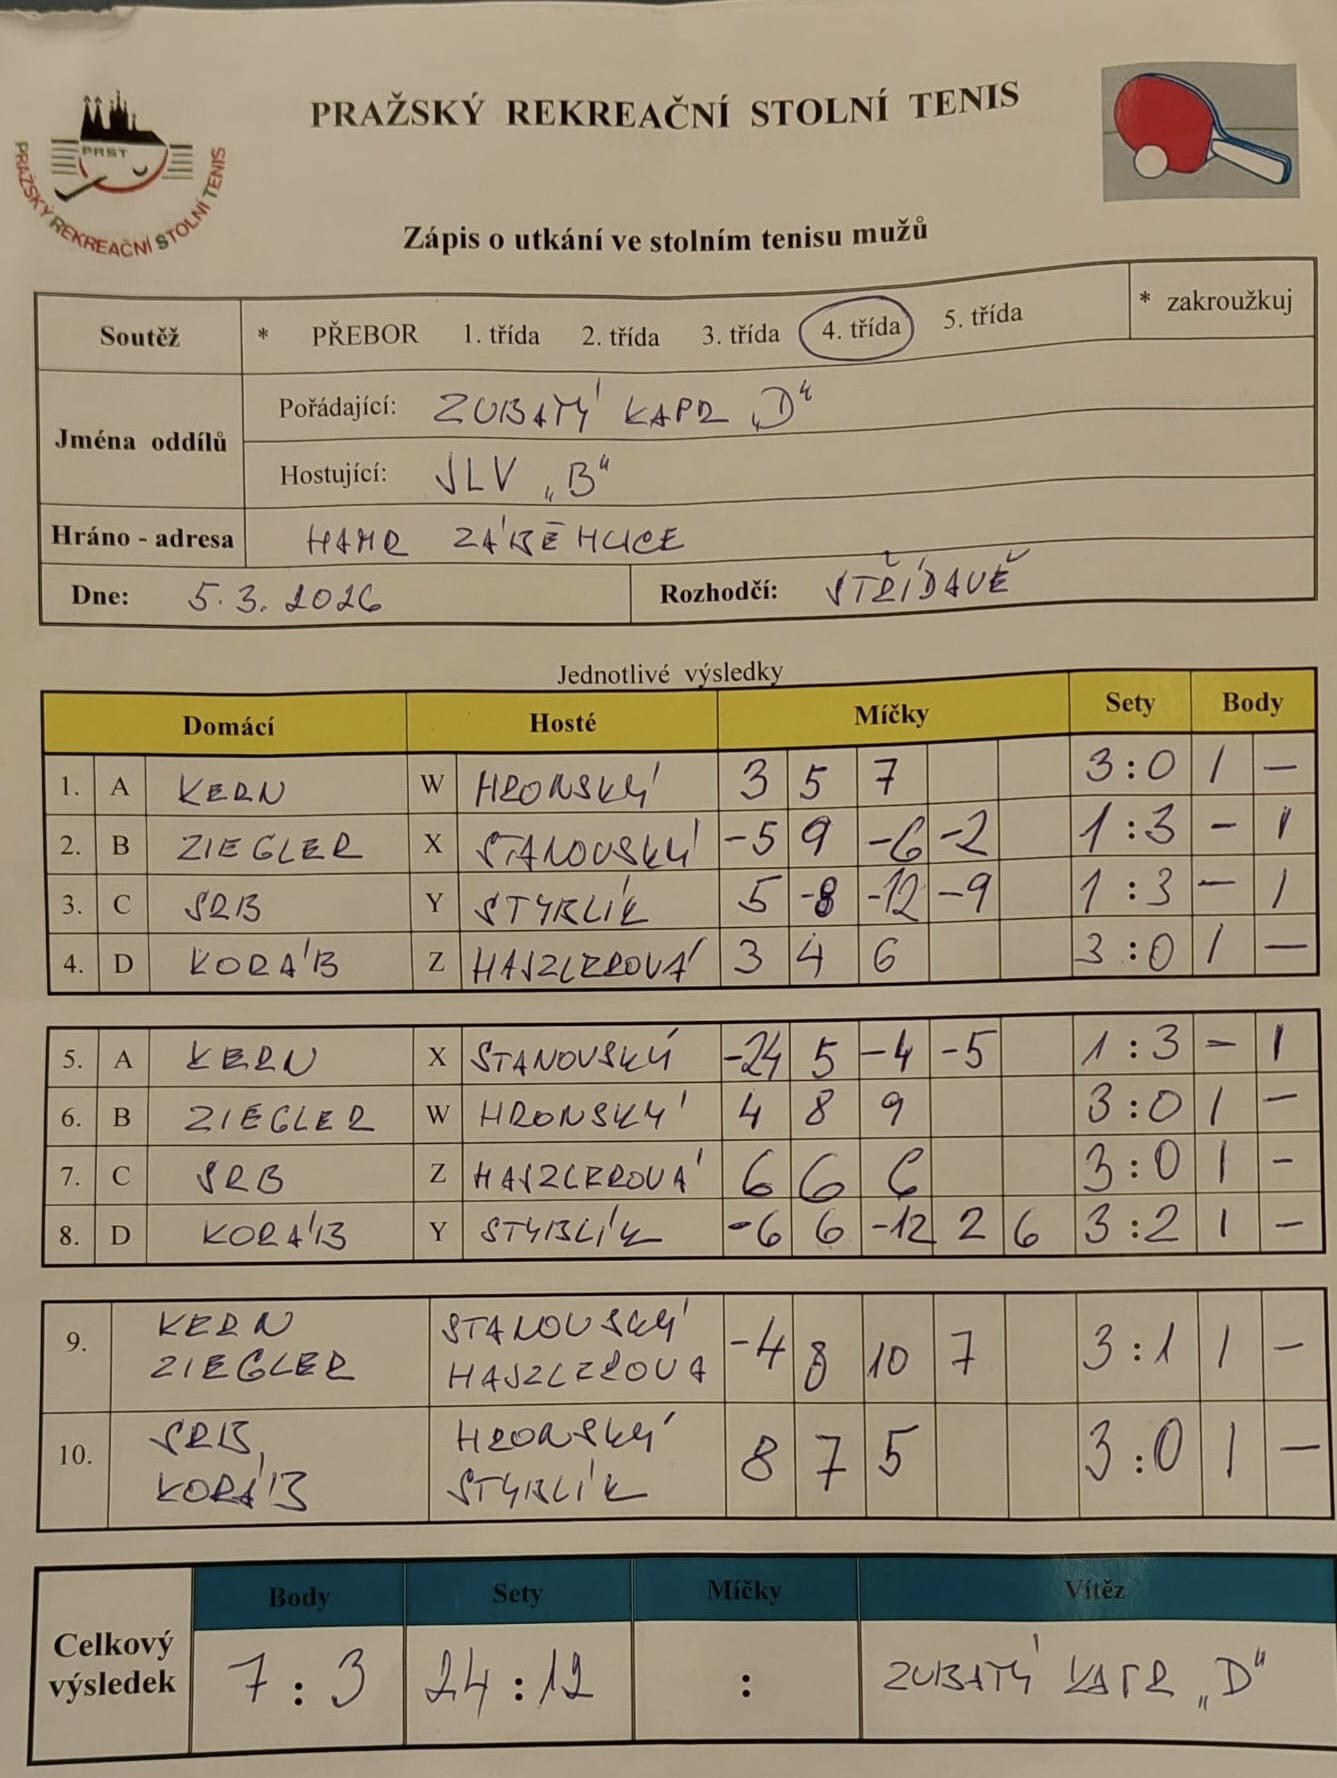 PRAŽSKÝ REKREAČNÍ STOLNÍ TENIS
PRST
PRAŽSKÝ REKREAČNÍ STOLNÍ TENIS
Zápis o utkání ve stolním tenisu mužů
Soutěž * PŘEBOR 1. třída 2. třída 3. třída 4. třída 5. třída * zakroužkuj
Jména oddílů
Pořádající: ZUBATÝ KAPR „D“
Hostující: JLV „B“
Hráno - adresa HAMR ZÁBĚHLICE
Dne: 5.3.2026 Rozhodčí: STŘÍDAVĚ
Jednotlivé výsledky
Domácí Hosté Míčky Sety Body
1. A KERN W HRONSKÝ 3 5 7 3:0 1 –
2. B ZIEGLER X STANOVSKÝ -5 9 -6 -2 1:3 – 1
3. C SRB Y STYBLÍK 5 -8 -12 -9 1:3 – 1
4. D KORÁB Z HAJZLEROVÁ 3 4 6 3:0 1 –
5. A KERN X STANOVSKÝ -24 5 -4 -5 1:3 – 1
6. B ZIEGLER W HRONSKÝ 4 8 9 3:0 1 –
7. C SRB Z HAJZLEROVÁ 6 6 6 3:0 1 –
8. D KORÁB Y STYBLÍK -6 6 -12 2 6 3:2 1 –
9. KERN STANOVSKÝ -4 8 10 7 3:1 1 –
ZIEGLER HAJZLEROVA
10. SRB, HRONSKÝ 8 7 5 3:0 1 –
KORÁB STYBLÍK
Body Sety Míčky Vítěz
Celkový výsledek 7:3 24:12 : ZUBATÝ KAPR „D“